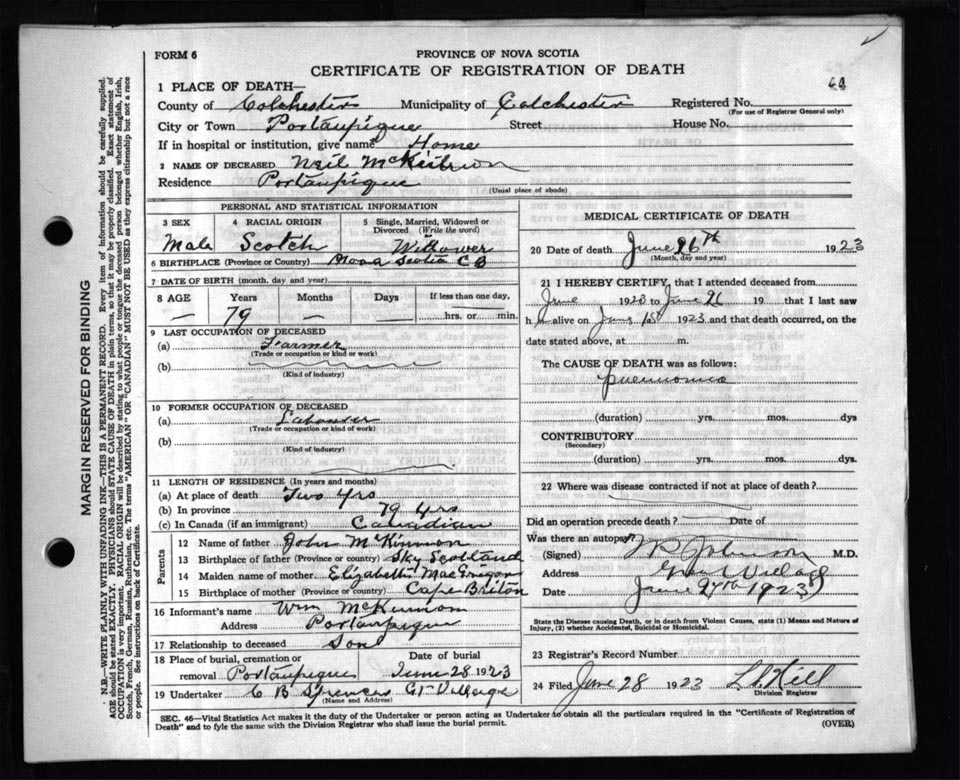 FORM 6
PROVINCE OF NOVA SCOTIA
CERTIFICATE OF REGISTRATION OF DEATH
64
1 PLACE OF DEATH—
County of Colchester Municipality of Colchester Registered No.
(For use of Registrar General only)
City or Town Portaupique Street House No.
If in hospital or institution, give name Home
2 NAME OF DECEASED Neil McKinnon
Residence Portaupique
(Usual place of abode)
PERSONAL AND STATISTICAL INFORMATION
3 SEX 4 RACIAL ORIGIN 5 Single, Married, Widowed or Divorced (Write the word)
Male Scotch Widower
6 BIRTHPLACE (Province or Country) Nova Scotia C B
7 DATE OF BIRTH (month, day and year)
8 AGE Years Months Days If less than one day,
— 79 — hrs. or min.
9 LAST OCCUPATION OF DECEASED
(a) Farmer
(Trade or occupation or kind of work)
(b)
(Kind of industry)
10 FORMER OCCUPATION OF DECEASED
(a) Labourer
(Trade or occupation or kind of work)
(b)
(Kind of industry)
11 LENGTH OF RESIDENCE (In years and months)
(a) At place of death Two yrs
(b) In province 79 yrs
(c) In Canada (if an immigrant) Canadian
Parents
12 Name of father John McKinnon
13 Birthplace of father (Province or country) Sky Scotland
14 Maiden name of mother Elizabeth MacGrigor
15 Birthplace of mother (Province or country) Cape Briton
16 Informant's name Wm McKinnon
Address Portaupique
17 Relationship to deceased Son
18 Place of burial, cremation or removal Portaupique Date of burial June 28 1923
19 Undertaker C B Spencer Gt Village
(Name and Address)
MEDICAL CERTIFICATE OF DEATH
20 Date of death June 26th 1923
(Month, day and year)
21 I HEREBY CERTIFY, that I attended deceased from
June 1920 to June 26 19 that I last saw
h alive on June 1st 1923 and that death occurred, on
the date stated above, at m.
The CAUSE OF DEATH was as follows:
pneumonia
(duration) yrs. mos. dys
CONTRIBUTORY
(Secondary)
(duration) yrs. mos. dys.
22 Where was disease contracted if not at place of death?
Did an operation precede death? Date of
Was there an autopsy?
(Signed) Johnson M.D.
Address Great Village
Date June 27th 1923
State the Disease causing Death, or in death from Violent Causes, state (1) Means and Nature of
Injury, (2) whether Accidental, Suicidal or Homicidal.
23 Registrar's Record Number
24 Filed June 28 1923 Hill
Division Registrar
SEC. 46—Vital Statistics Act makes it the duty of the Undertaker or person acting as Undertaker to obtain all the particulars required in the "Certificate of Registration of
Death" and to fyle the same with the Division Registrar who shall issue the burial permit. (OVER)
MARGIN RESERVED FOR BINDING
N.B.—WRITE PLAINLY WITH UNFADING INK—THIS IS A PERMANENT RECORD. Every item of information should be carefully supplied.
AGE should be stated EXACTLY. PHYSICIANS should STATE CAUSE OF DEATH in plain terms, so that it may be properly classified. Exact statement of
OCCUPATION is very important. RACIAL ORIGIN will be described by stating to what people or tongue the deceased person belonged whether English, Irish,
Scotch, French, German, Russian, Ruthenian, etc. The terms "AMERICAN" OR "CANADIAN" MUST NOT BE USED as they express citizenship but not a race
or people. See instructions on back of Certificate.